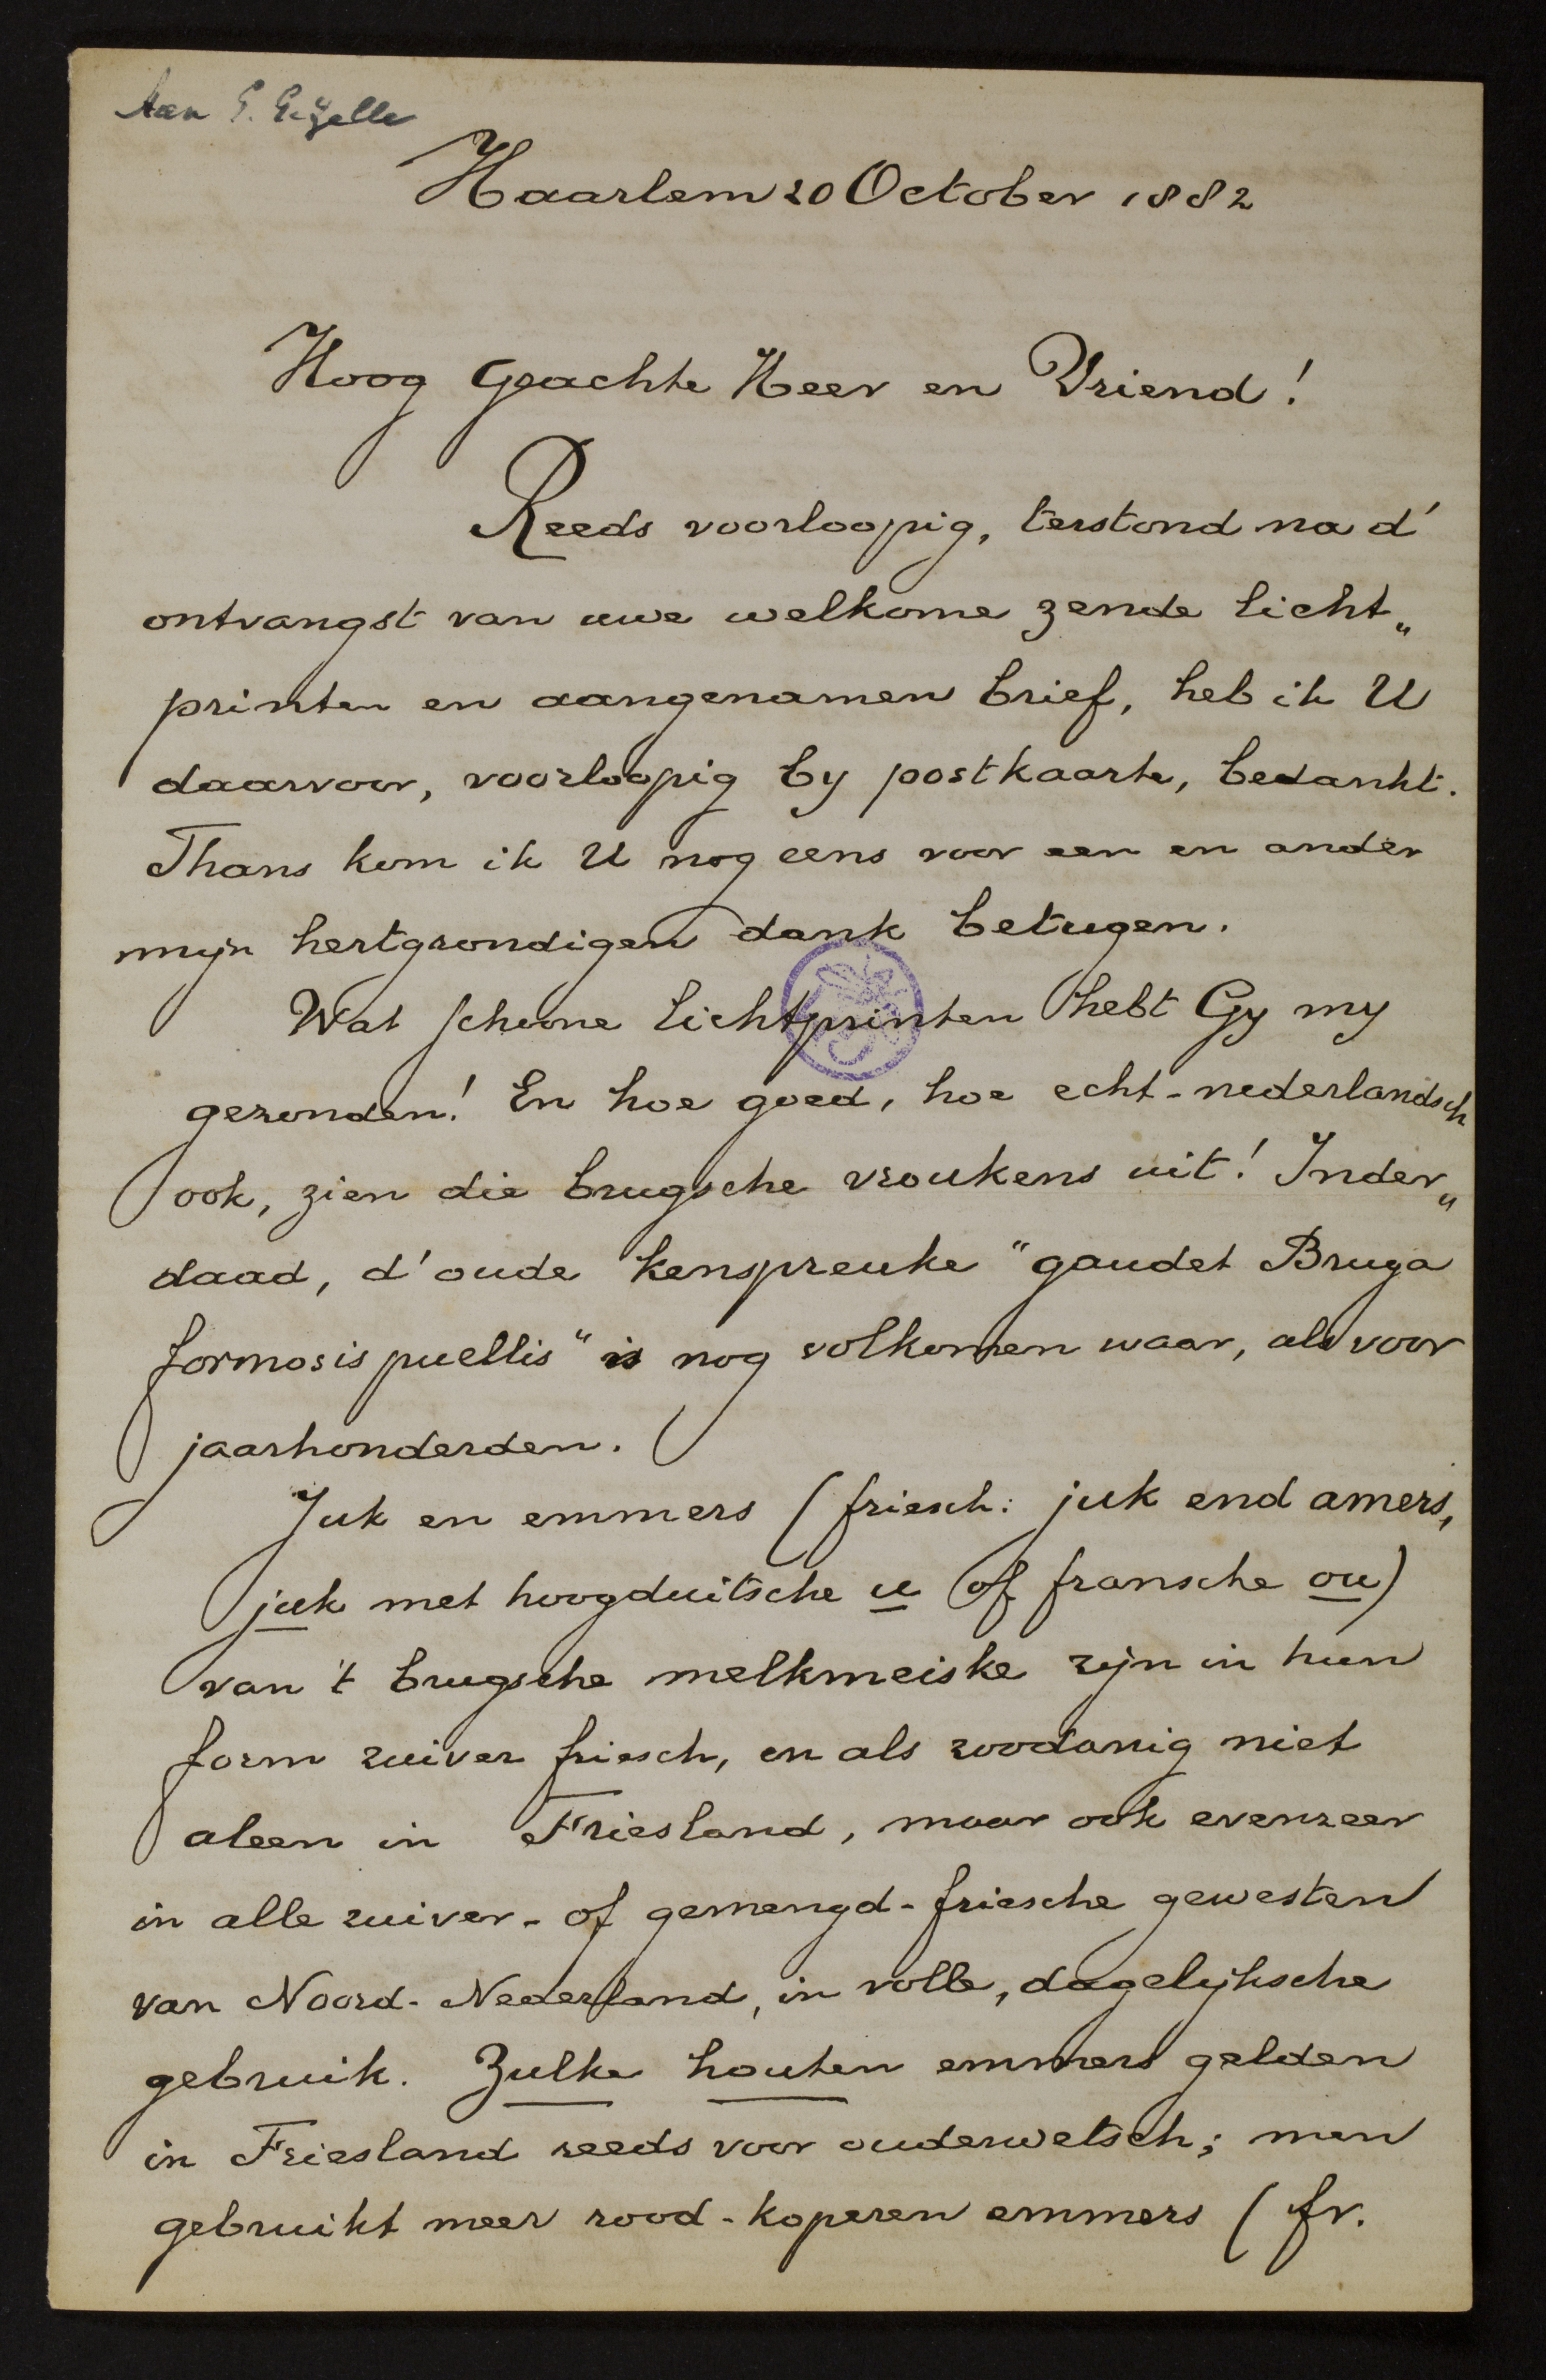 Aan G. Gezelle
Haarlem 20 October 1882
Hoog Geachte Heer en Vriend!
Reeds voorloopig, terstond na d'
ontvangst van uwe welkome zende licht„
printen en aangenamen brief, heb ik U
daarvoor, voorloopig by postkaarte, bedankt.
Thans kom ik U nog eens voor een en ander
mijn hertgrondigen dank betugen.
Wat schoone lichtprinten hebt Gy my
gezonden! En hoe goed, hoe echt-nederlandsch
ook, zien die brugsche vroukens uit! Inder„
daad, d'oude kenspreuke "gaudet Bruga
formosis puellis" is nog volkomen waar, als voor
jaarhonderden.
Juk en emmers (friesch: juk end amers,
juk met hoogduitsche u of fransche ou)
van 't brugsche melkmeiske zijn in hun
form zuiver friesch, en als zoodanig niet
aleen in Friesland, maar ook evenzeer
in alle zuiver- of gemengd-friesche gewesten
van Noord-Nederland, in volle, dagelijksche
gebruik. Zulke houten emmers gelden
in Friesland reeds voor ouderwetsch; men
gebruikt meer rood-koperen emmers (fr.